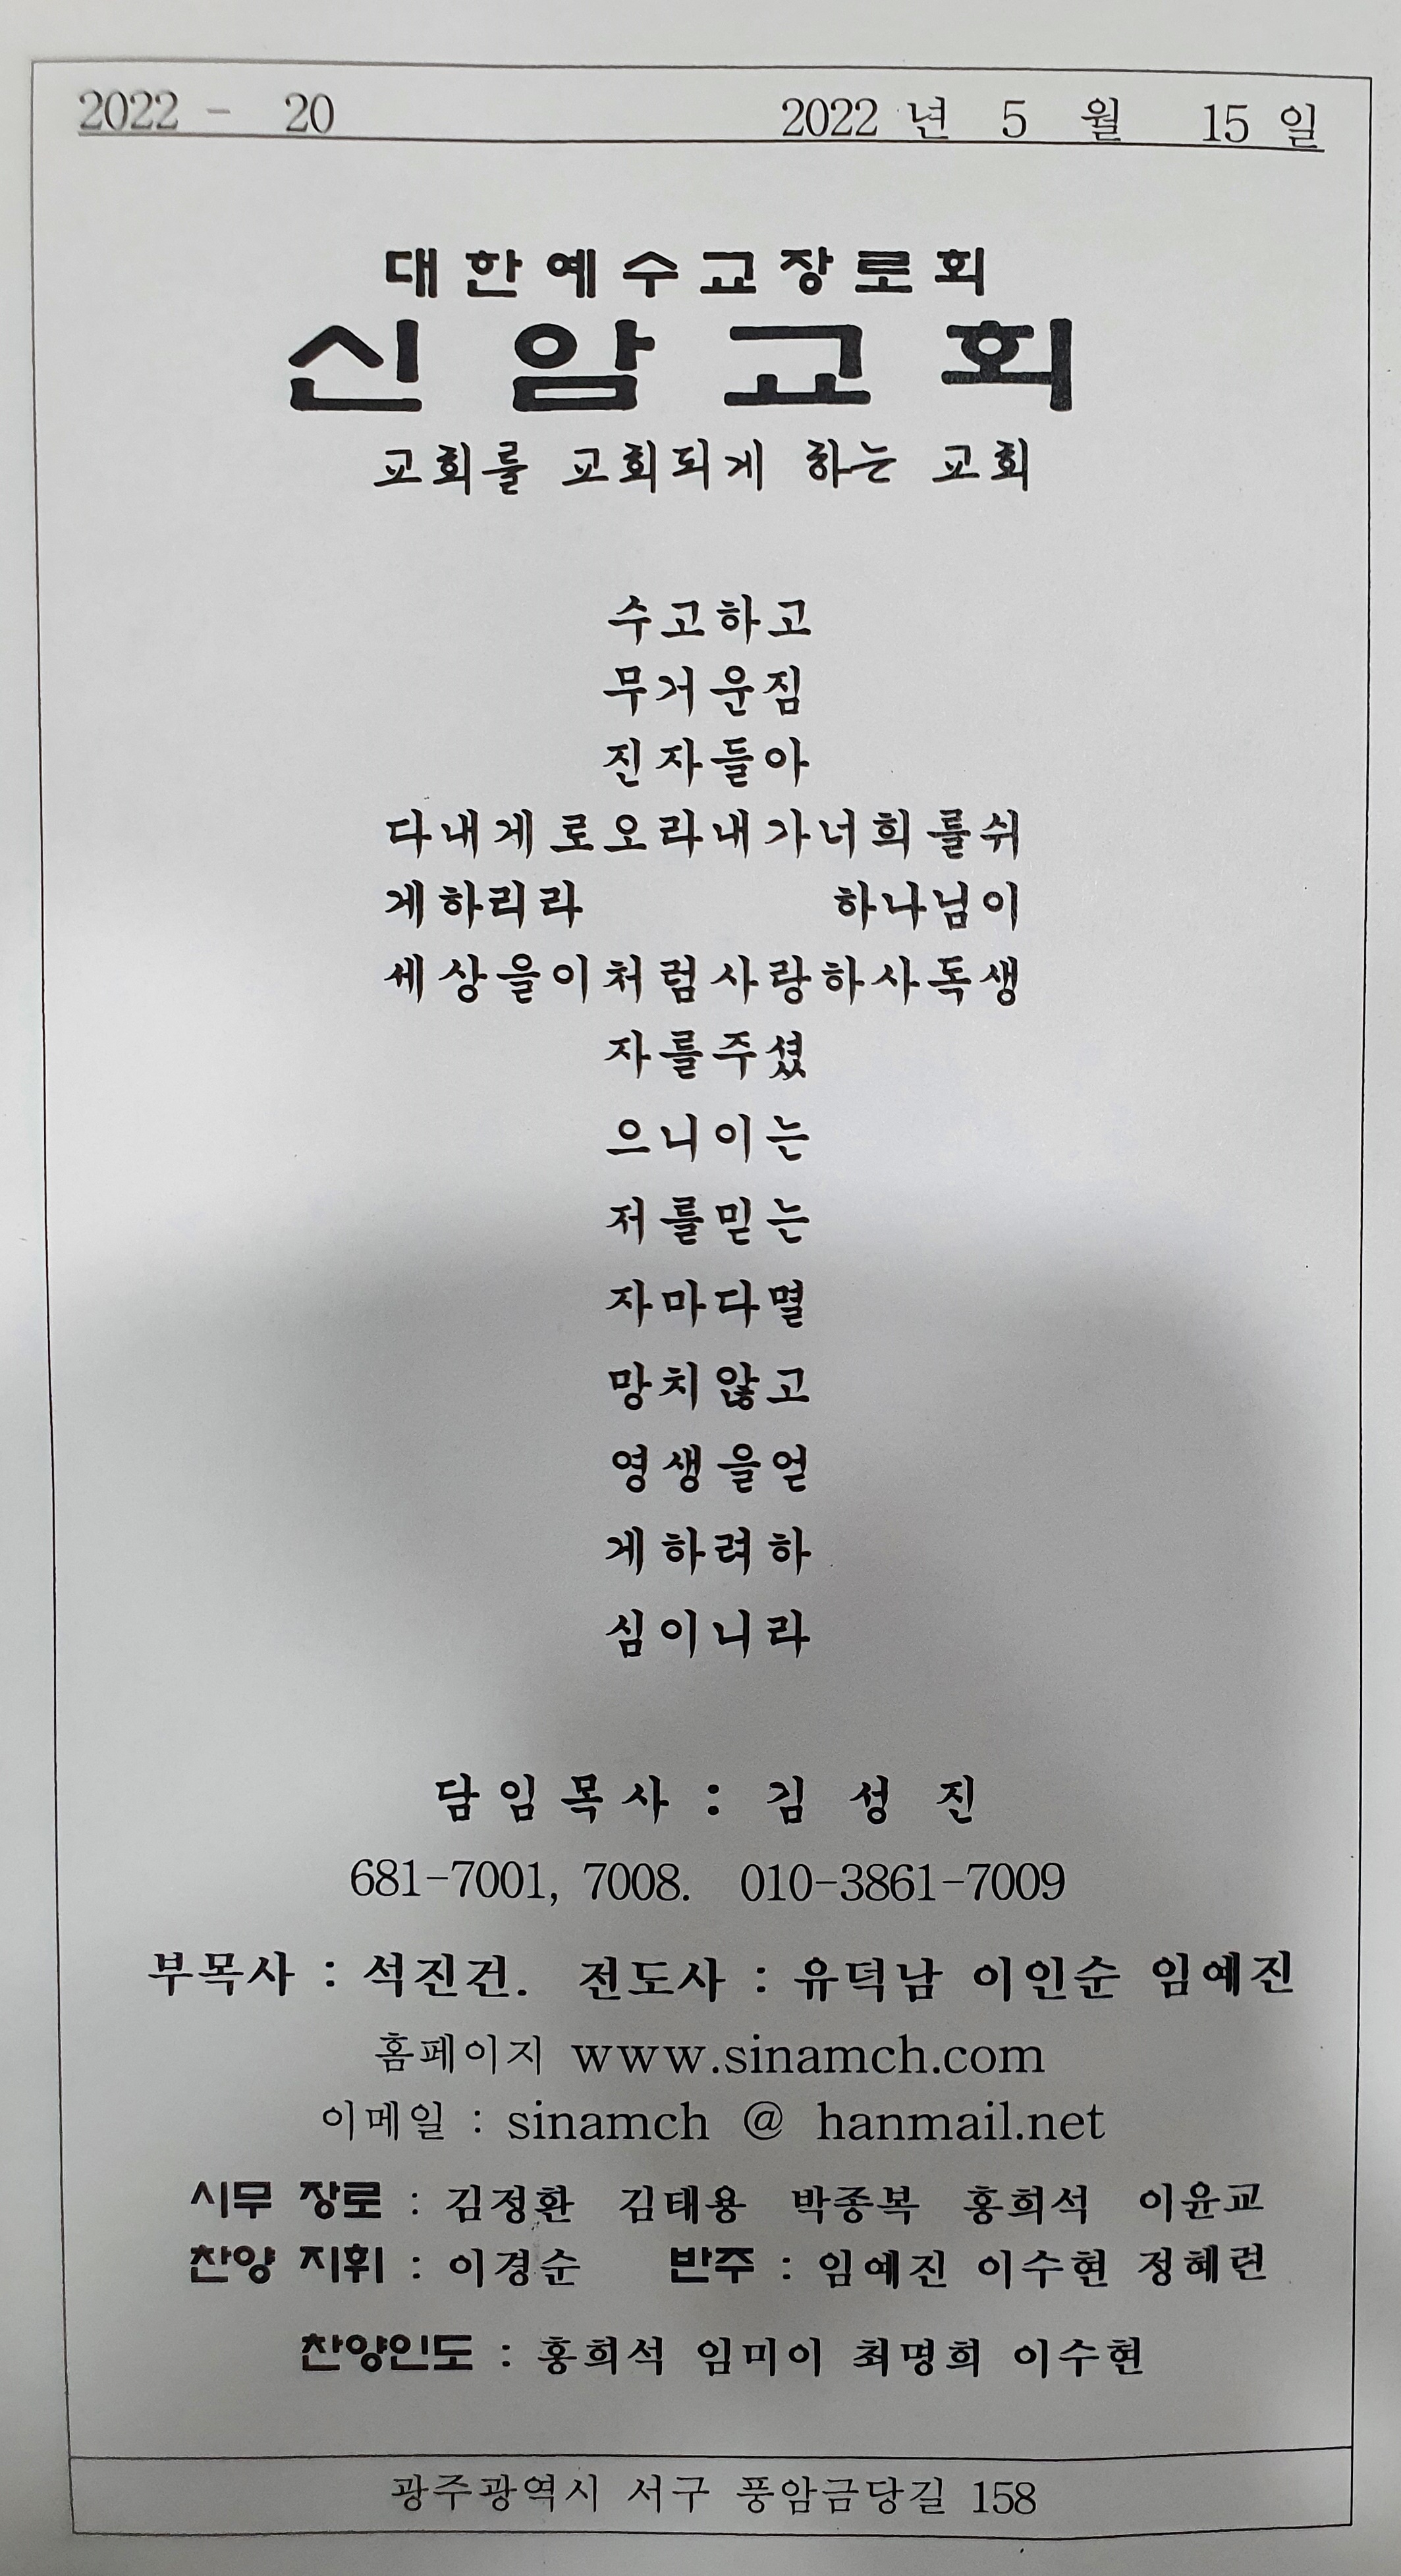 2022 - 20 2022 년 5 월 15 일
대한예수교장로회
신암교회
교회를 교회되게 하는 교회
수고하고
무거운짐
진자들아
다내게로오라내가너희를쉬
게하리라 하나님이
세상을이처럼사랑하사독생
자를주셨
으니이는
저를믿는
자마다멸
망치않고
영생을얻
게하려하
심이니라
담임목사 : 김 성 진
681-7001, 7008. 010-3861-7009
부목사 : 석진건. 전도사 : 유덕남 이인순 임예진
홈페이지 www.sinamch.com
이메일 : sinamch @ hanmail.net
시무 장로 : 김정환 김태용 박종복 홍희석 이윤교
찬양 지휘 : 이경순 반주 : 임예진 이수현 정혜련
찬양인도 : 홍희석 임미이 최명희 이수현
광주광역시 서구 풍암금당길 158